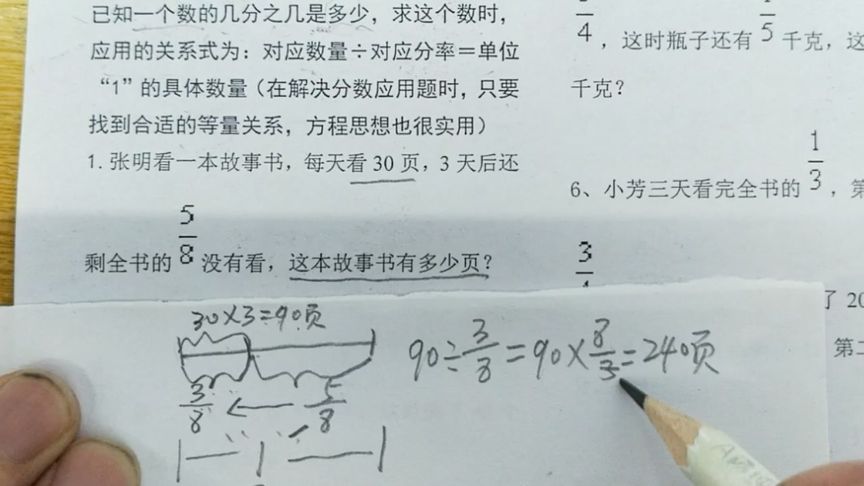 已知一个数的几分之几是多少，求这个数时，
应用的关系式为：对应数量÷对应分率＝单位
“1”的具体数量（在解决分数应用题时，只要
找到合适的等量关系，方程思想也很实用）
1. 张明看一本故事书，每天看 30 页，3 天后还
剩全书的 5/8 没有看，这本故事书有多少页？
4，这时瓶子还有 1/5 千克，这
千克？
6、小芳三天看完全书的 1/3，第
3
了 20
第二
30×3=90页
90÷3/8=90×8/3=240页
3/8 ← 5/8